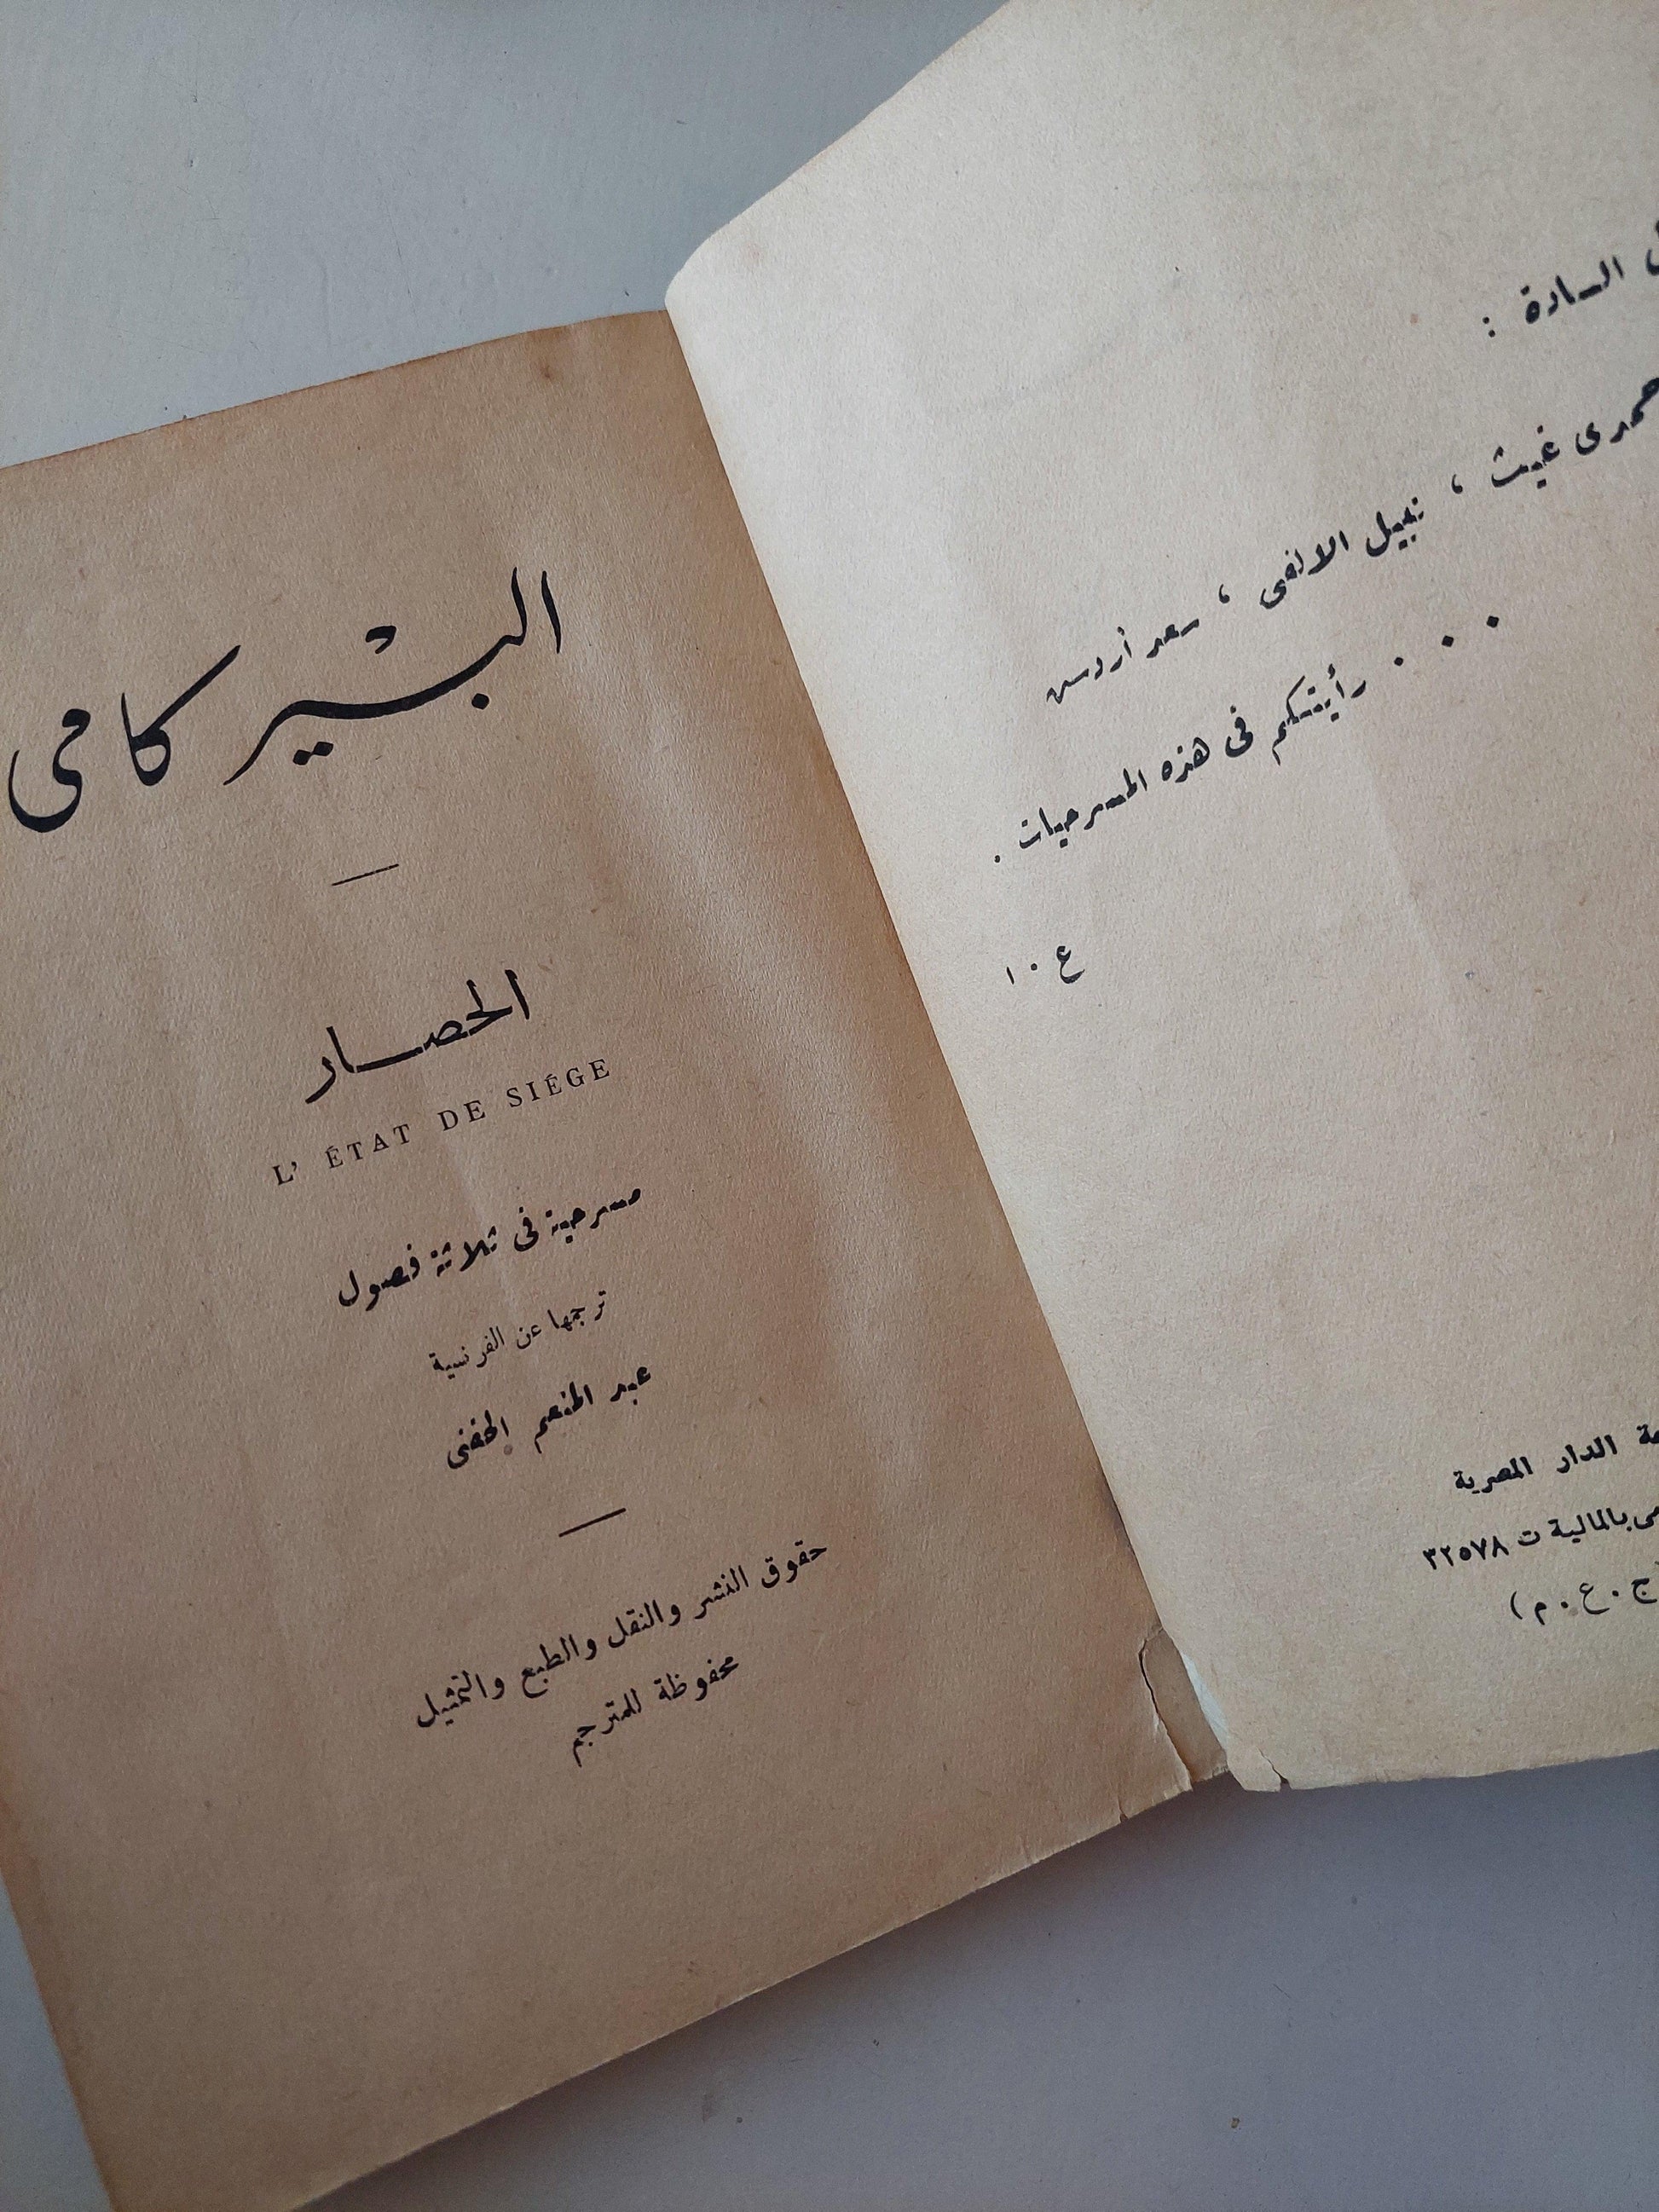 السادة :
حمدى غيث ، نبيل الالفى ، سعد أردش
. . . رأيتكم فى هذه المسرحيات .
ع . ا
الدار المصرية
بالمالية ت ٣٢٥٧٨
(ج . ع . م)
البير كامى
الحصار
L' ÉTAT DE SIÉGE
مسرحية فى ثلاثة فصول
ترجمها عن الفرنسية
عبد المنعم الحفنى
حقوق النشر والنقل والطبع والتمثيل
محفوظة للمترجم